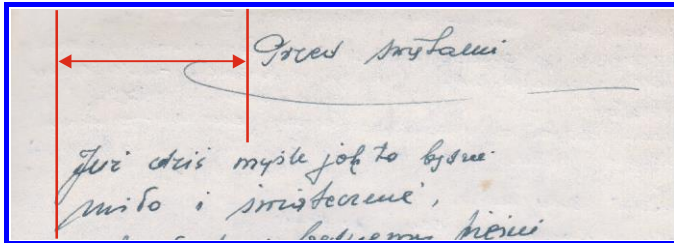 Przed świętami
Już dziś myślę jak to będzie
miło i świątecznie,